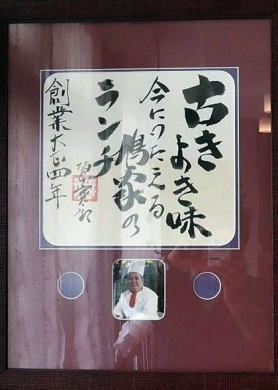 古き
よき味
今につたえる
鳩家の
ランチ
創業大正四年